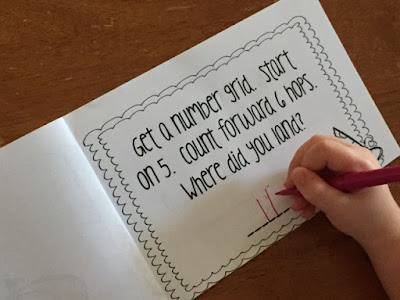 Get a number grid. Start
on 5. Count forward 6 hops.
Where did you land?
11